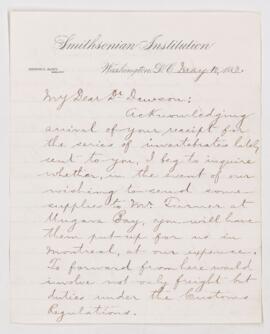 Smithsonian Institution
Washington, D.C. May 12, 188
My Dear Dr Dawson:
Acknowledging
arrival of your receipt for
the series of invertebrates lately
sent to you, I beg to inquire
whether, in the event of our
wishing to send some
supplies to Mr. Turner at
Ungava Bay, you will have
them put up for us in
Montreal, at our expense.
To forward from here would
involve not only freight but
duties under the Customs
Regulations.